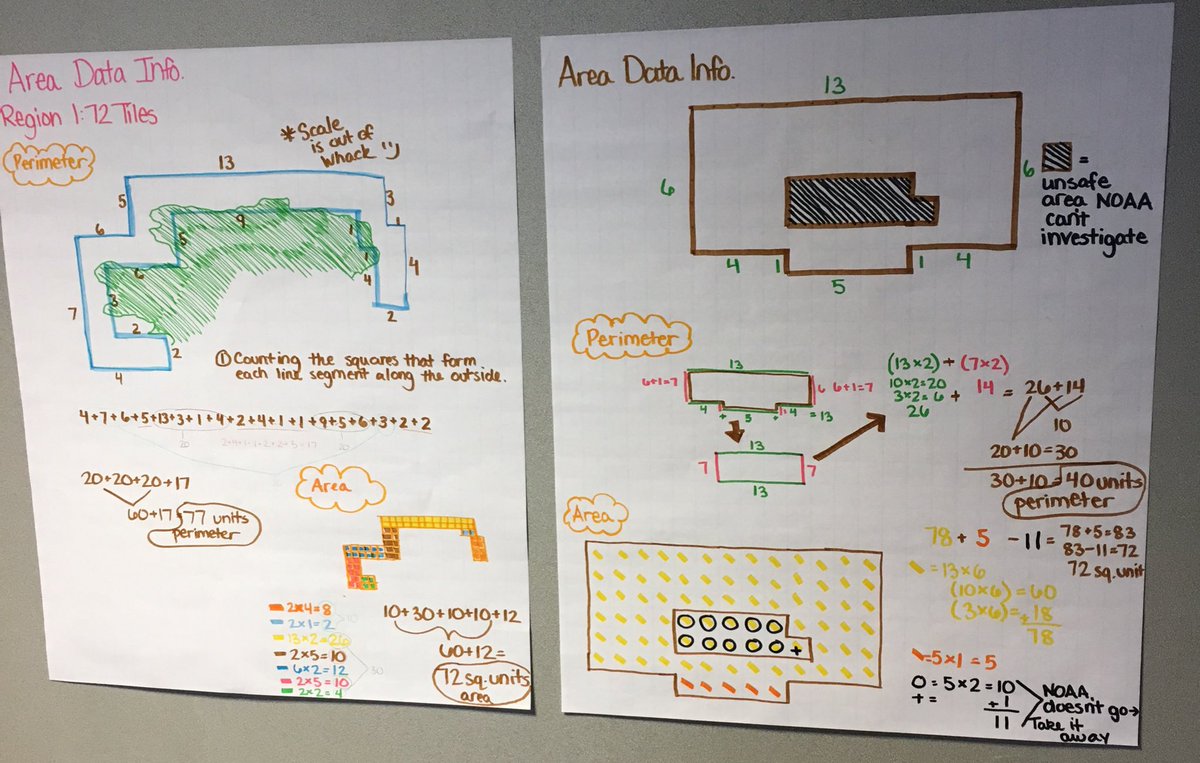 Area Data Info.
Region 1: 72 Tiles
Perimeter
*Scale
is out of
whack
13
5
3
6
9
1
1
5
1
6
4
4
7
3
2
2
2
4
① Counting the squares that form
each line segment along the outside.
4+7+6+5+13+3+1+4+2+4+1+1+9+5+6+3+2+2
20
20
20+20+20+17
60+17
77 units
perimeter
Area
2×4=8
2×1=2
13×2=26
2×5=10
6×2=12
2×5=10
2×2=4
30
10+30+10+10+12
60+12=
72 sq. units
area
Area Data Info.
13
6
6
4
1
5
1
4
=
unsafe
area NOAA
can't
investigate
Perimeter
13
6+1=7
6
6+1=7
4
+
5
+
4
=13
13
7
7
13
(13×2)+(7×2)
10×2=20
3×2=6
26
+
14
= 26+14
10
20+10=30
30+10=40 units
perimeter
Area
78+5-11=
78+5=83
83-11=72
72 sq. unit
=13×6
(10×6)=60
(3×6)=+18
78
=5×1=5
O=5×2=10
+=
+1
11
NOAA
doesn't go→
Take it
away